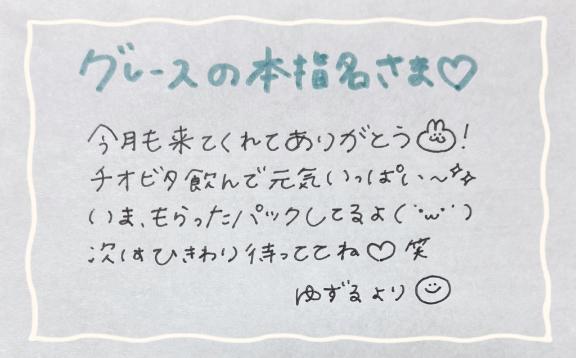 グレースの本指名さま♡
今月も来てくれてありがとう!
チオビタ飲んで元気いっぱい〜✨
いま、もらったパックしてるよ(˙ω˙)
次はひきわり待っててね♡笑
ゆずるより☺